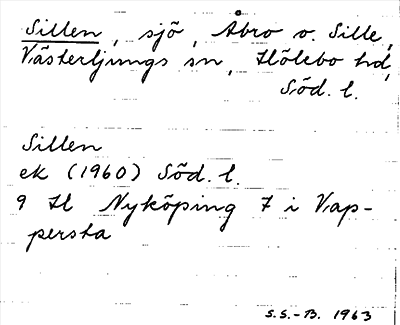 Sillen, sjö, Åbro o. Sille,
Västerljungs sn, Hölebo hd,
Söd. l.
Sillen
ek (1960) Söd. l.
9 H Nyköping 7 i Vap-
persta
S.S.-B. 1963